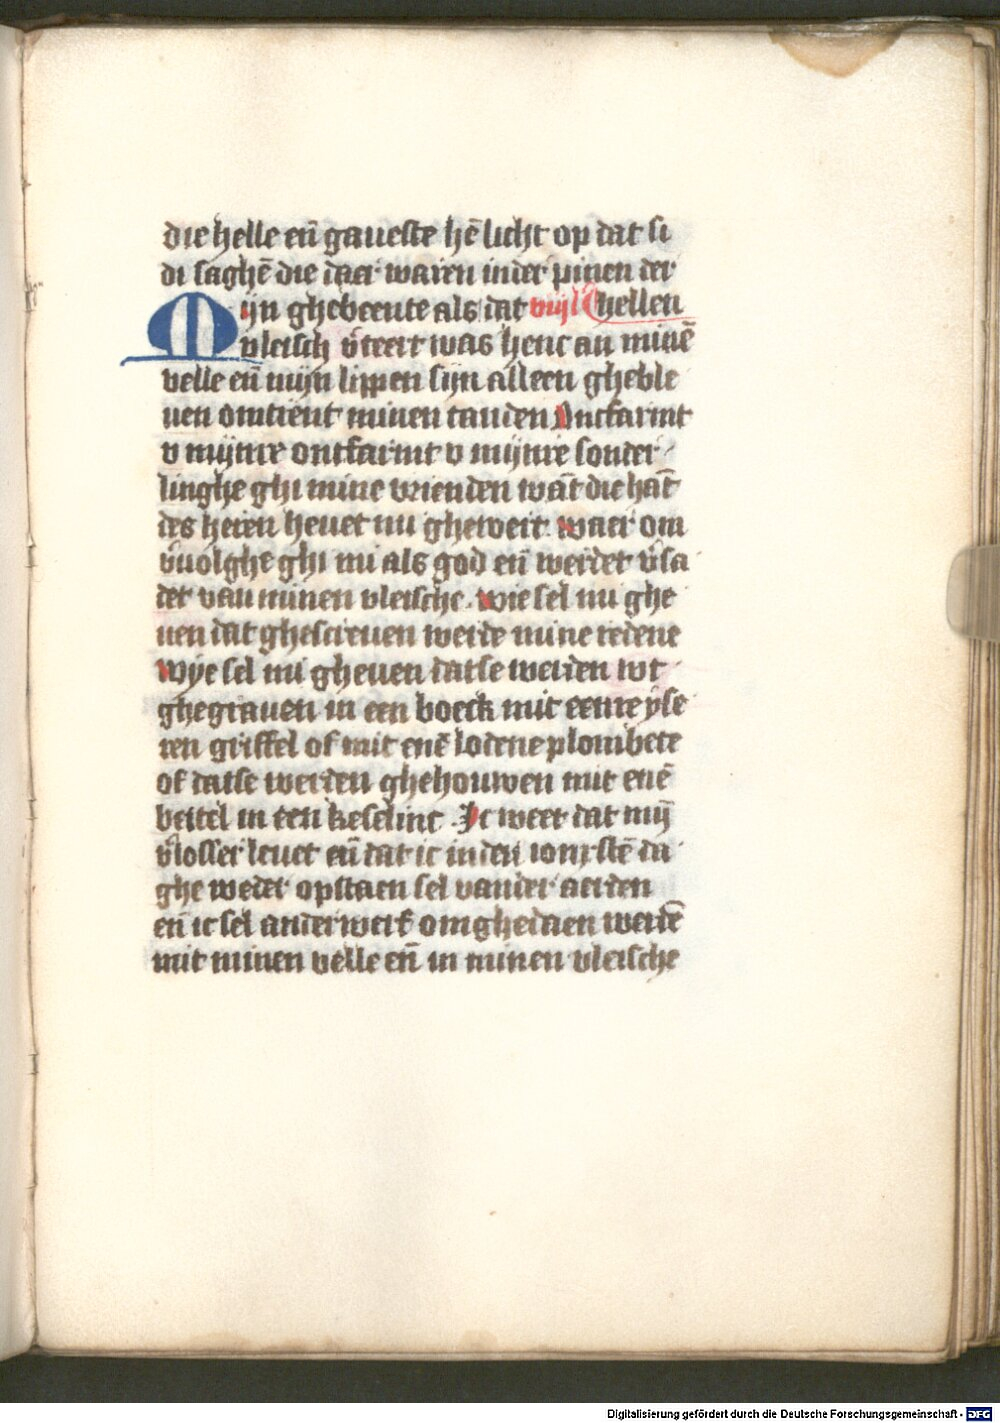 die helle eñ gaueste hē licht op dat si
di saghē die daer waren inder pinen der
Mijn ghebeente als dat viijl hellen
vleisch v̄teert was henc an minē
velle eñ mijn lippen sijn alleen gheble
uen omtrent minen tanden Ontfarmt
v mijnre ontfarmt v mijnre sonder
linghe ghi mine vrienden wāt die hāt
des heren heuet mi gheroert. waer om
v̄uolghe ghi mi als god eñ werdet v̄sa
det van minen vleische. wie sel mi ghe
uen dat ghescreuen werde mine redene
wye sel mi gheuen datse werden wt
ghegrauen in een boeck mit eenre yse
ren griffel of mit enē lodene plombete
of datse werden ghehouwen mit enē
beitel in een keselinc. Ic weet dat mij
v̄losser leuet eñ dat ic in den ionxstē da
ghe weder opstaen sel vander aerden
eñ ic sel anderwerf omghedaen werdē
mit minen velle eñ in minen vleische
Digitalisierung gefördert durch die Deutsche Forschungsgemeinschaft - DFG